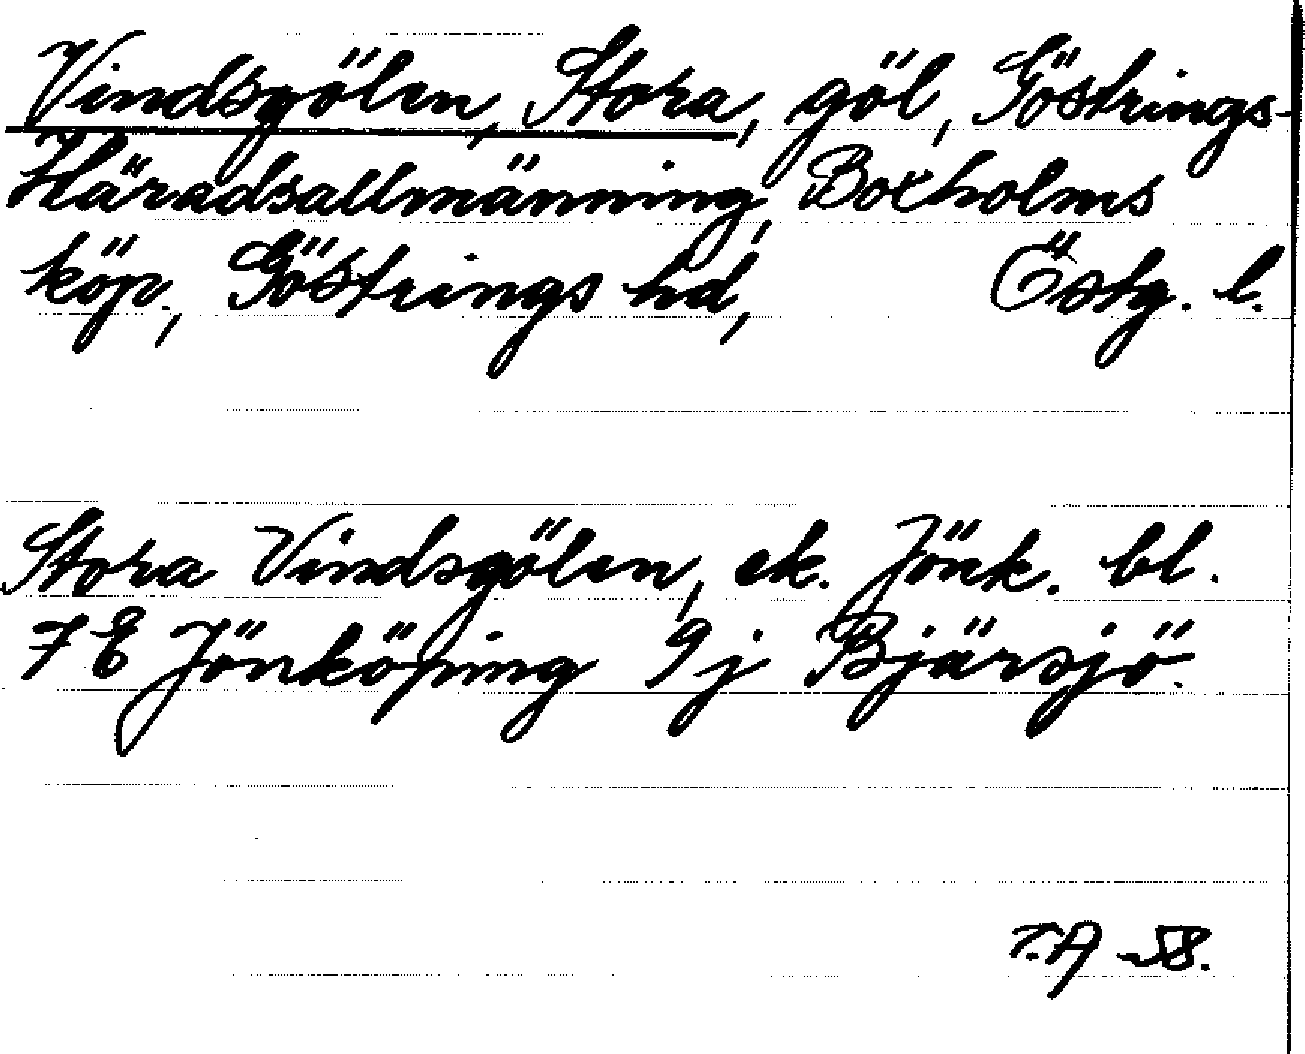 Vindsgölen, Stora, göl, Göstrings-
Häradsallmänning, Boxholms
köp., Göstrings hd, Östg. l.
Stora Vindsgölen, ek. Jönk. bl.
7 E Jönköping 9j Bjärsjö.
T.A -58.